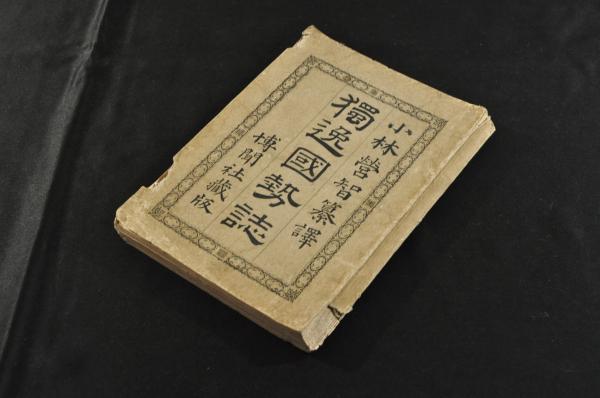 小林營智纂譯
獨逸國勢誌
博聞社藏版